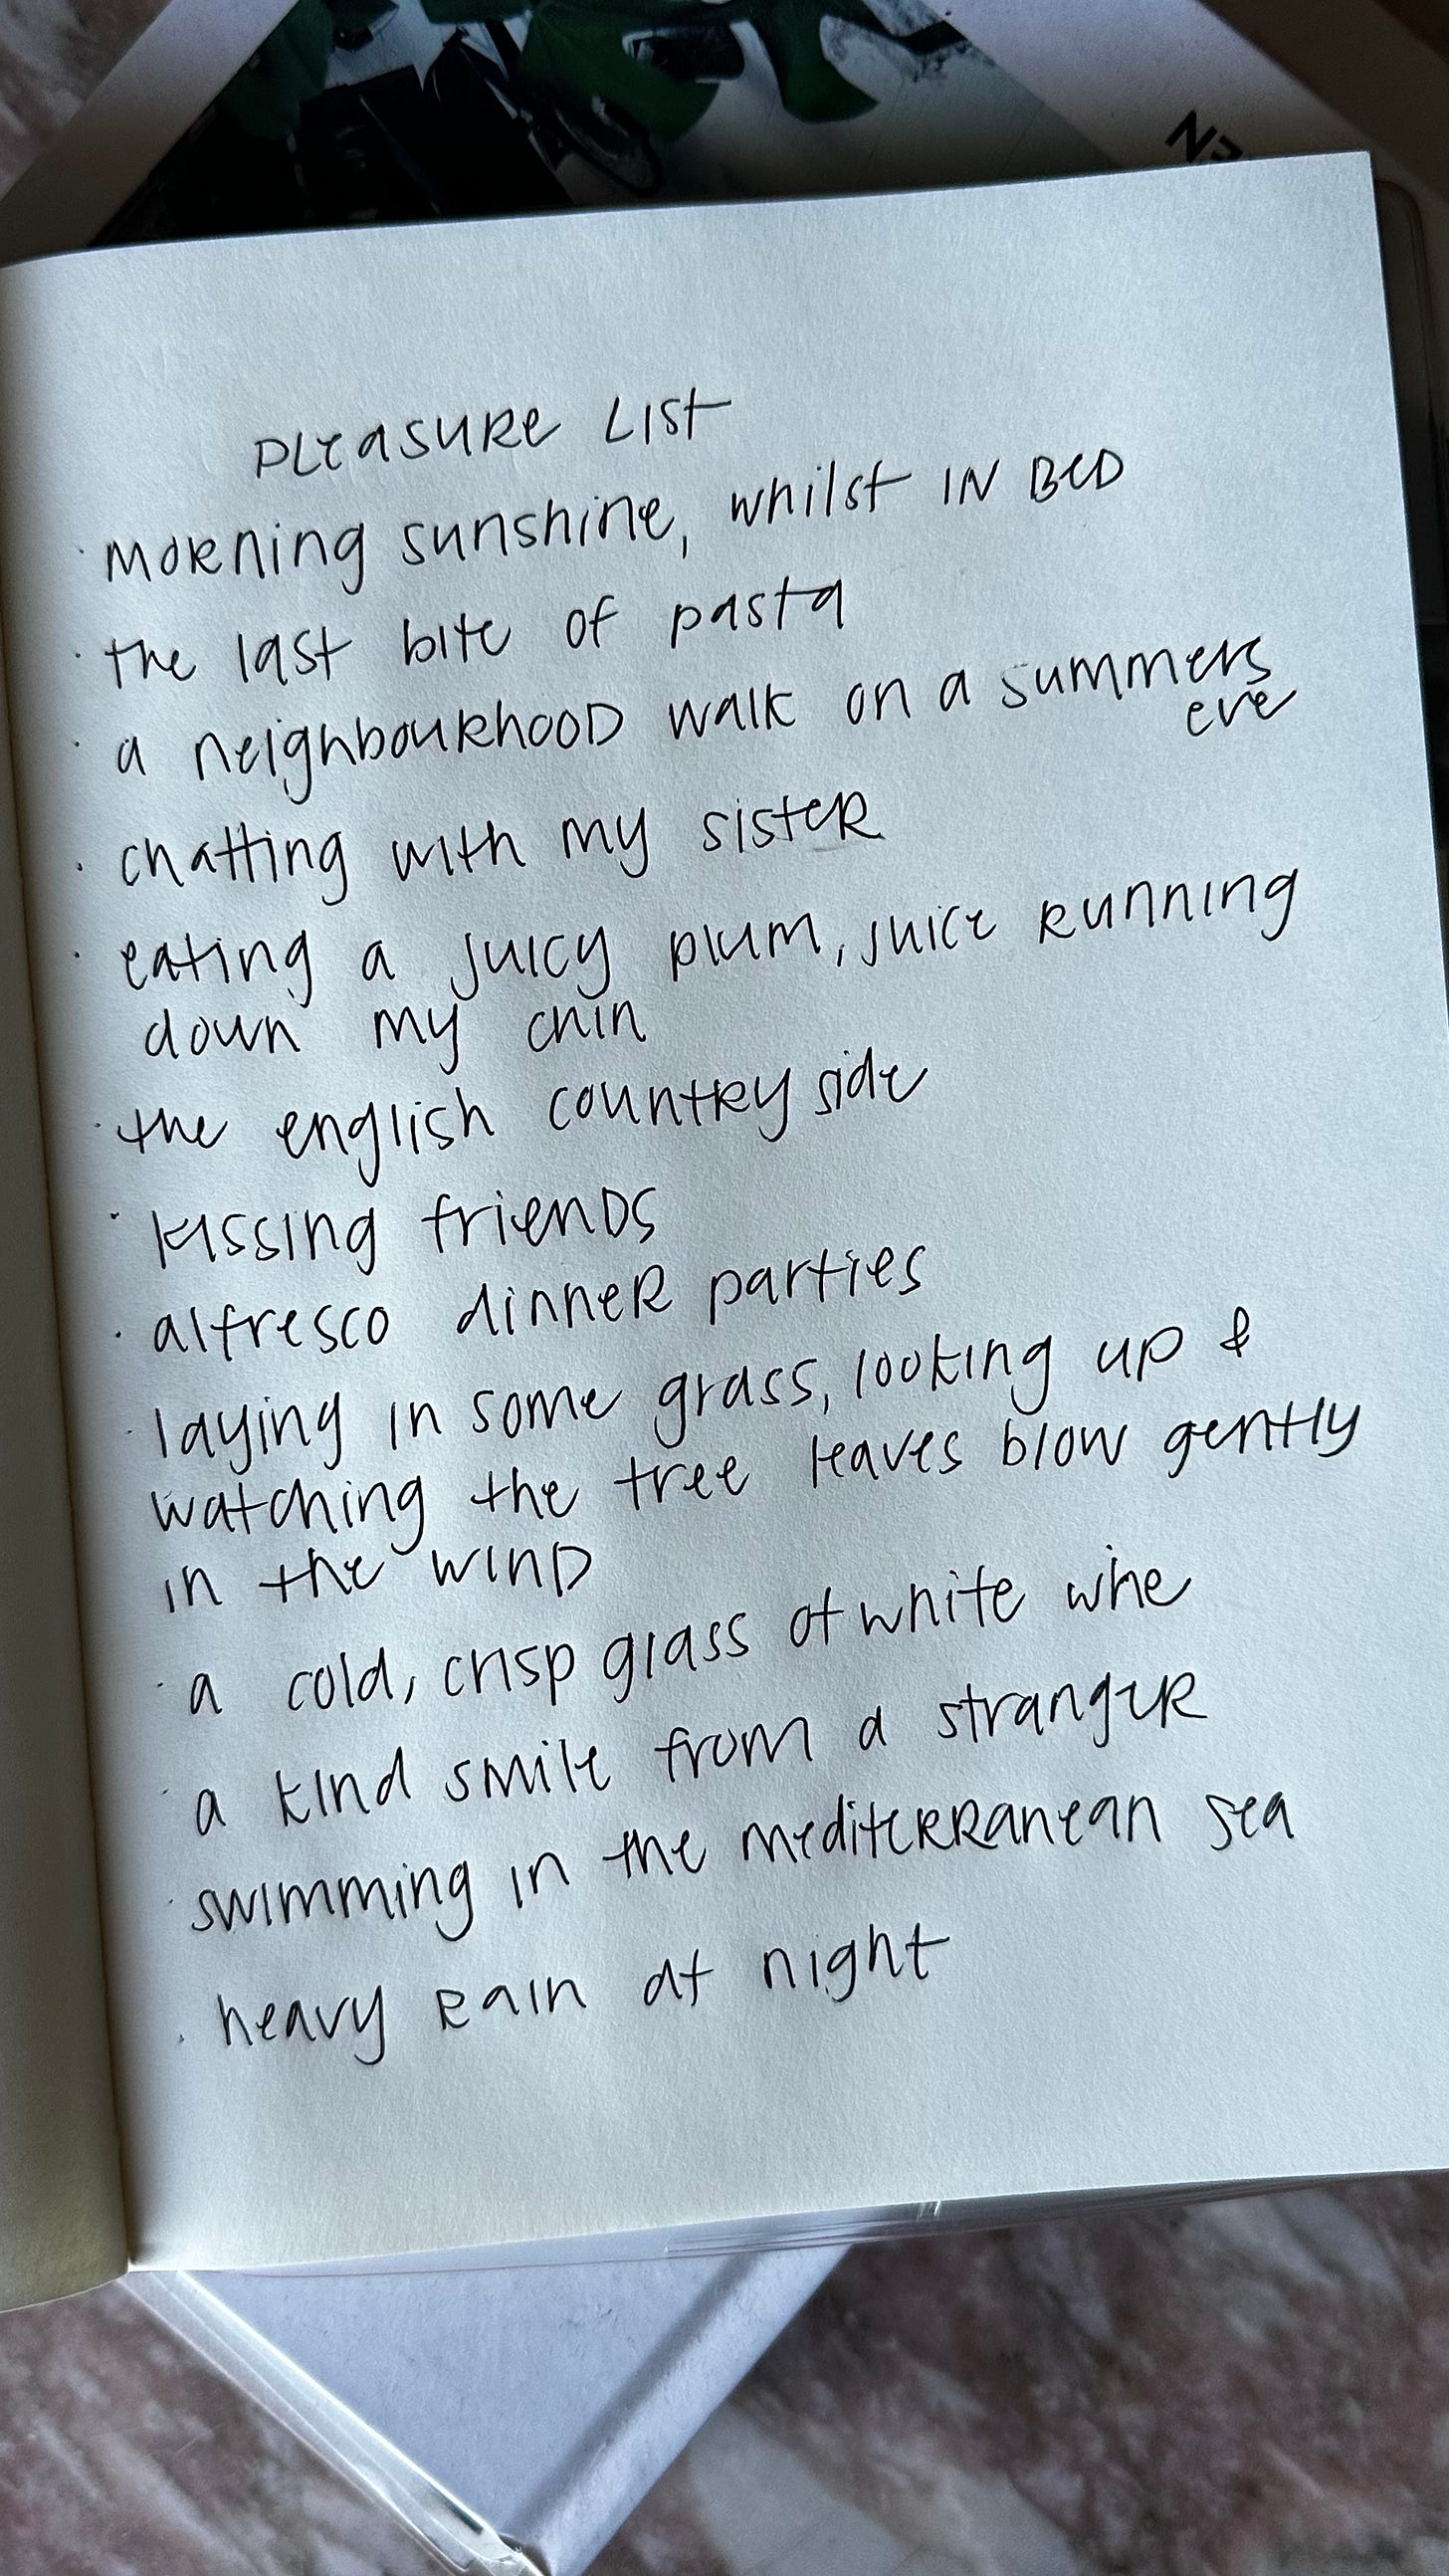 PLEASURE LIST
· MORNING sunshine, whilst IN BED
· the last bite of pasta
· a neighbourhood walk on a summers
eve
· chatting with my sister
· eating a juicy plum, juice running
down my chin
· the english countryside
· kissing friends
· alfresco dinner parties
· laying in some grass, looking up &
watching the tree leaves blow gently
in the wind
· a cold, crisp glass of white wine
· a kind smile from a stranger
· swimming in the mediterranean sea
· heavy rain at night